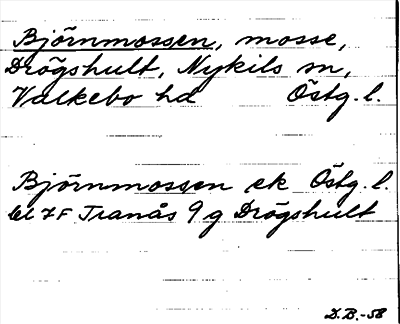 Björnmossen, mosse,
Drögshult, Nykils sn,
Valkebo hd Östg. l.
Björnmossen ek Östg. l.
bl 7F Tranås 9 g Drögshult
D.B.-58